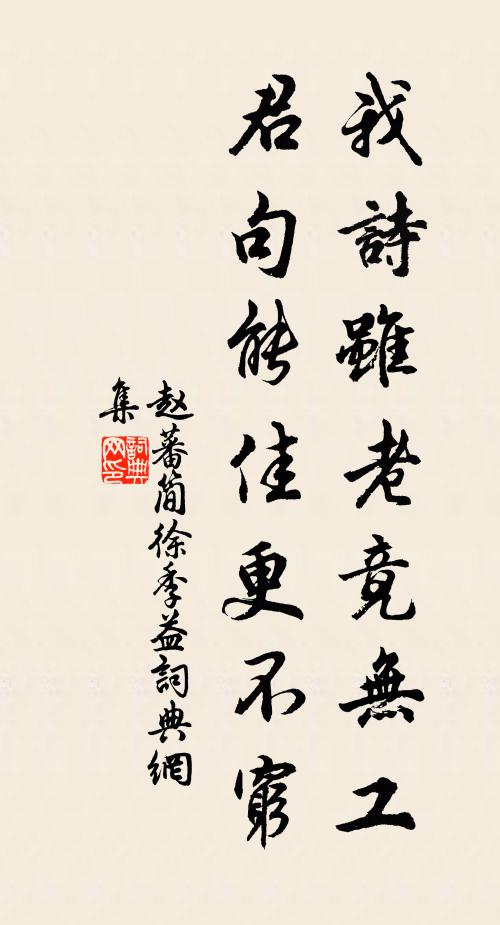 我詩雖老竟無工
君句能佳更不窮
赵蕃簡徐季益詞典網
集
詞典网印